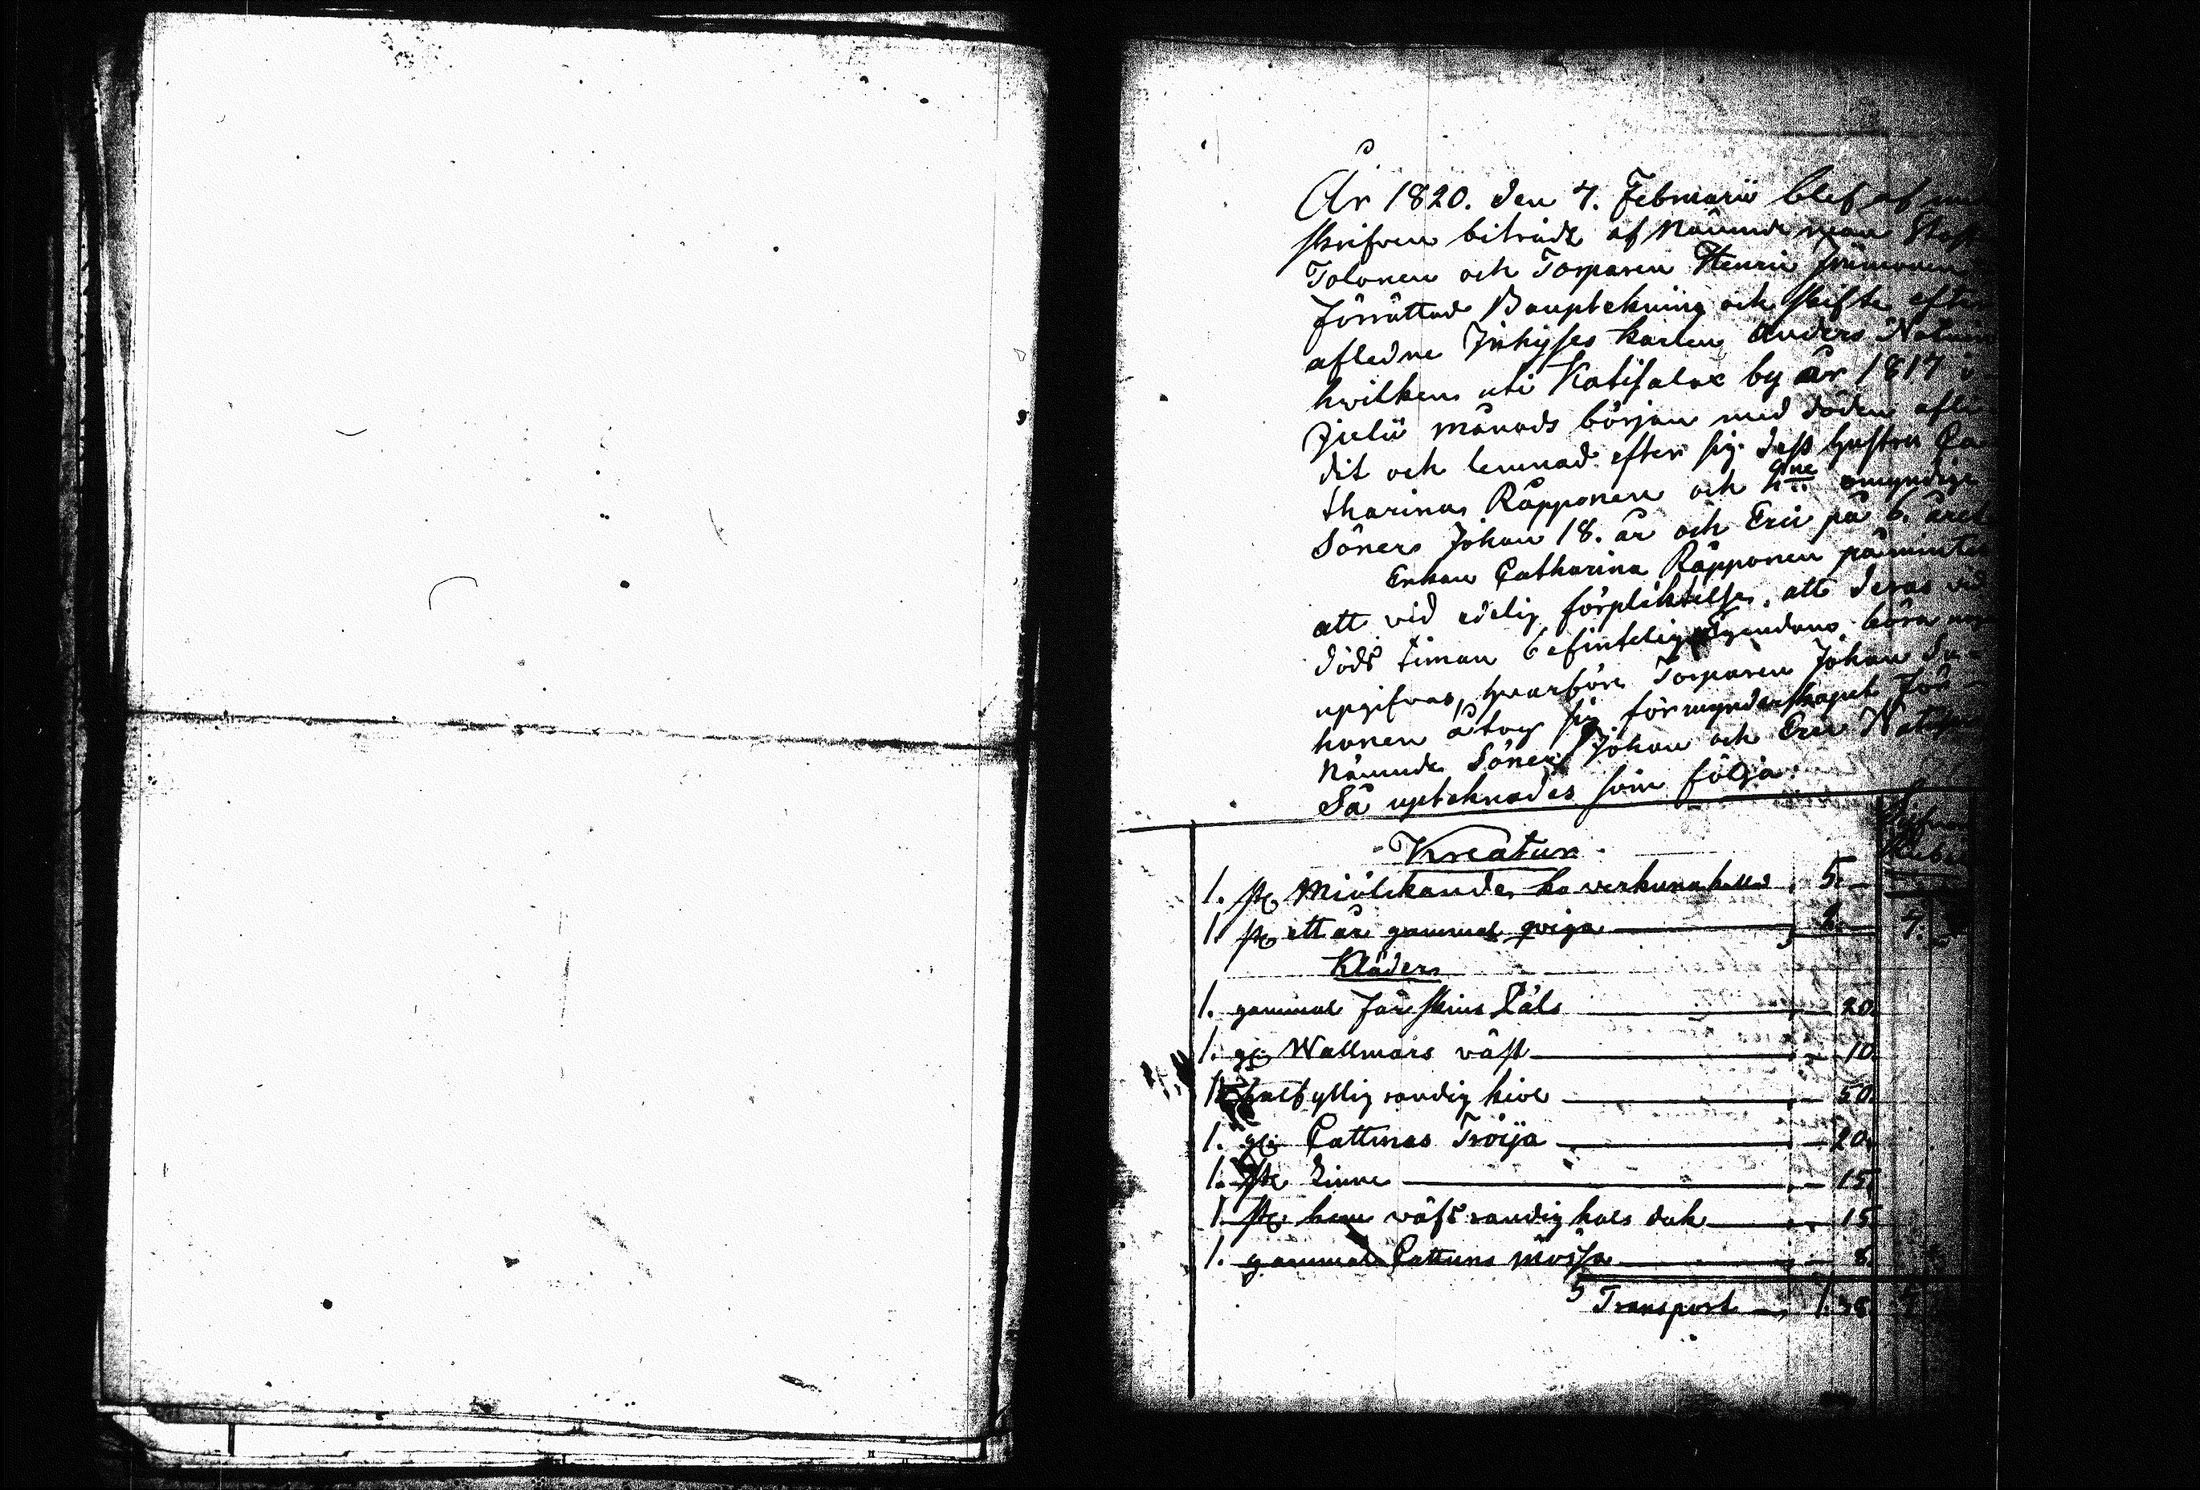 År 1820. den 7. Februarii blef af
skrifven biträdt af Nämndeman
Tolonen och Torparen Henric
förrättad Bouptekning och skifte efter
afledne Inhyses karlen Anders
hvilken uti Katisalox by år 1817 i
Julii månads början med döden aflit
dit och lemnad efter sig dess hustru Ca
tharina Räpponen och omyndige
Söner Johan 18. år och Eric på 6. året
Enkan Catharina Räpponen påmintes
att vid edelig förpliktelse, att deras vid
döds timan befintelig Egendom böra
upgifvas, hvarföre Torparen Johan Su-
honen åtog sig förmynderskapet för
Nämnde Söner Johan och Eric
Så upteknades som följa:
Kreatur
1. st. Miölckande ko verkuna kallad 5. —
1. st. ett år gammal qviga 2. — 7.
Kläder
1. gammal Fårskins Päls 20.
1. gl. Wallmars väst 10.
1. halfyllig randig kiol 50.
1. gl. Cattuns Tröija 20.
1. st. 15.
1. st. hem väfd randig hals duk 15.
1. gammal Cattuns mössa 8.
Transport 1. 38.